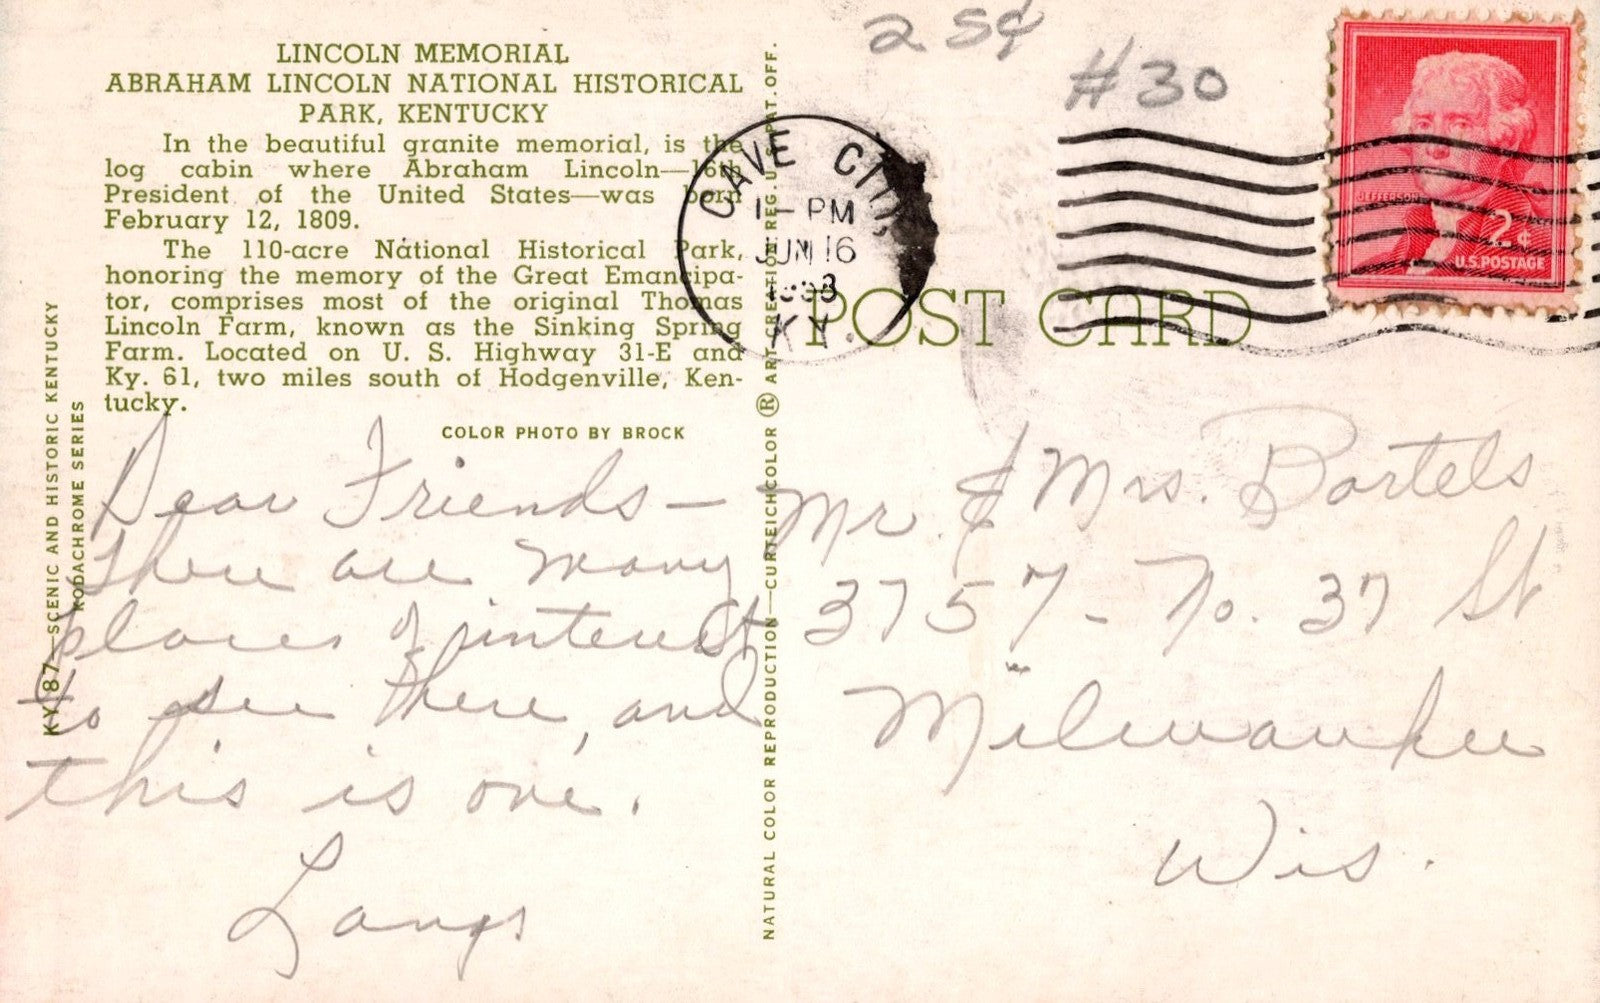 LINCOLN MEMORIAL
ABRAHAM LINCOLN NATIONAL HISTORICAL
PARK, KENTUCKY
In the beautiful granite memorial, is the
log cabin where Abraham Lincoln—16th
President of the United States—was born
February 12, 1809.
The 110-acre National Historical Park,
honoring the memory of the Great Emancipa-
tor, comprises most of the original Thomas
Lincoln Farm, known as the Sinking Spring
Farm. Located on U. S. Highway 31-E and
Ky. 61, two miles south of Hodgenville, Ken-
tucky.
COLOR PHOTO BY BROCK
KY 87—SCENIC AND HISTORIC KENTUCKY
KODACHROME SERIES
Dear Friends—
There are many
places of interest
to see there, and
this is one.
Langs
NATURAL COLOR REPRODUCTION—CURTEICHCOLOR ® ART-CREATION REG. U.S. PAT. OFF.
25¢
#30
CAVE CITY,
1 - PM
JUN 16
KY.
POST CARD
JEFFERSON
2¢
U.S. POSTAGE
Mr & Mrs. Bartels
3757 - No. 37 St
Milwaukee
Wis.